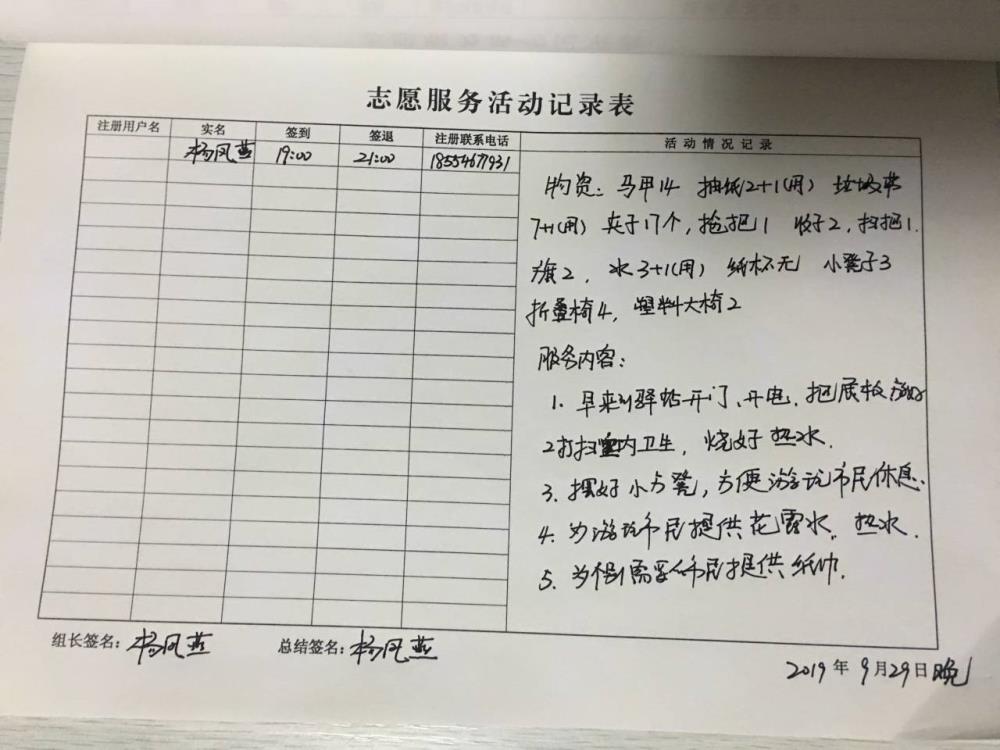 志愿服务活动记录表
注册用户名 实名 签到 签退 注册联系电话 活动情况记录
杨凤燕 19:00 21:00 18554671931
物资：马甲14 抽纸12+1(用) 垃圾袋
7+1(用) 夹子17个，拖把11 2，扫把1.
旗2，水3+1(用) 纸杯无 小凳子3
折叠椅4，塑料大椅2
服务内容：
1. 早来到驿站开门、开电，把展板放好
2打扫室内卫生，烧好热水.
3. 摆好小方凳，方便游玩市民休息.
4. 为游玩市民提供花露水，热水.
5. 为有需要市民提供纸巾.
组长签名：杨凤燕 总结签名：杨凤燕
2019年9月29日晚